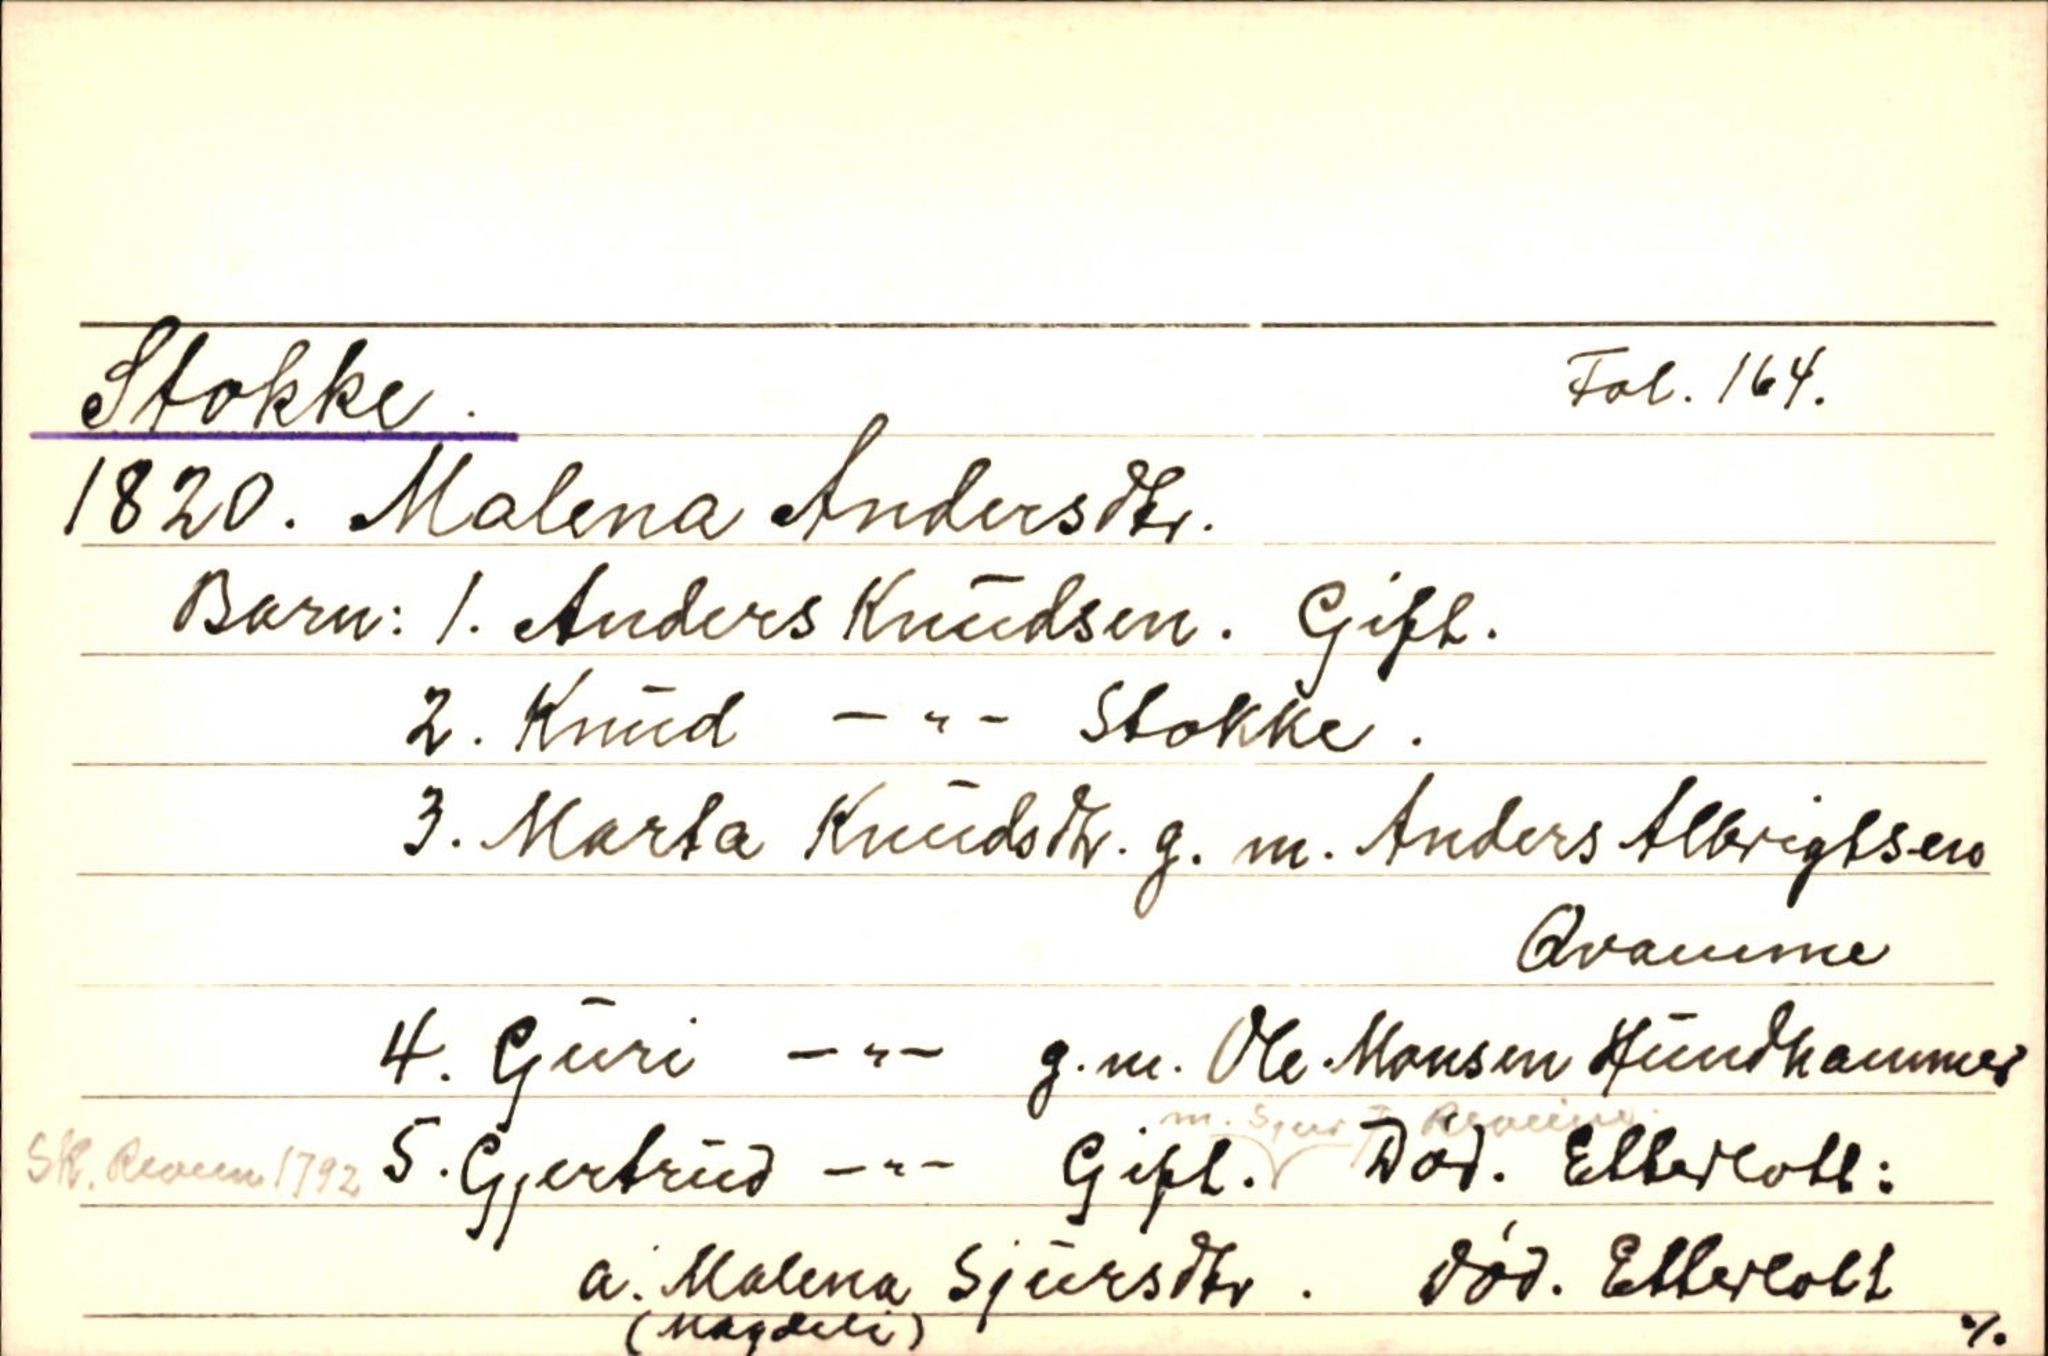 Stokke. Fol. 164.
1820. Malena Andersdtr.
Barn: 1. Anders Knudsen. Gift.
2. Knud —"— Stokke.
3. Marta Knudsdtr. g. m. Anders Albrigtsen
Qvamme
4. Guri —"— g.m. Ole Monsen Hundhammer
m. Sjur
Sk. 1792 5. Gjertrud —"— Gift. Död. Etterlott:
a. Malena Sjursdtr. Död. Etterlott
(Magdeli) ./.